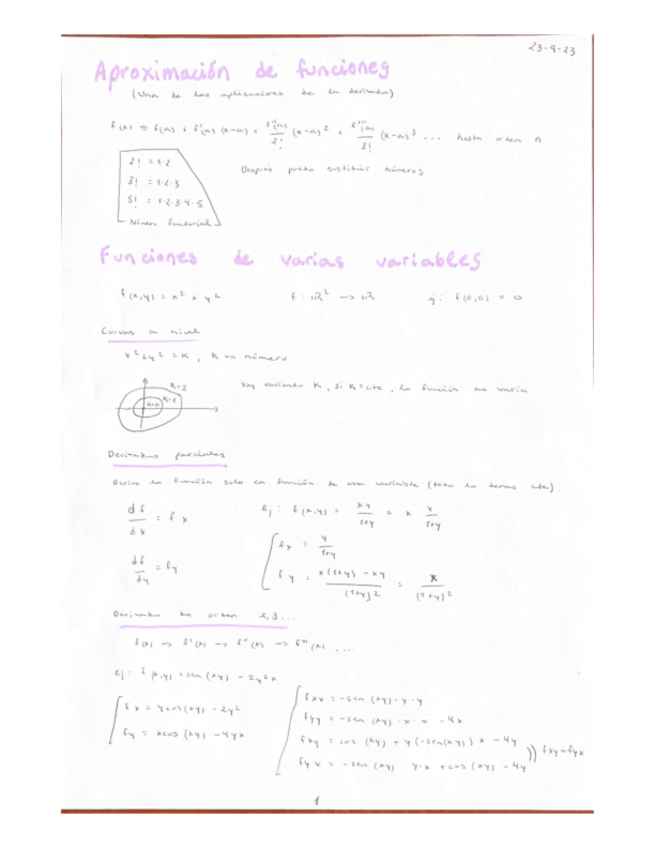 23-9-23
Aproximación de funciones
(Una de las aplicaciones de la derivada)
f(x) ≈ f(a) + f'(a) (x-a) + f''(a)/2! (x-a)² + f'''(a)/3! (x-a)³ ... hasta orden n
2! = 1·2
3! = 1·2·3
5! = 1·2·3·4·5
Número factorial
Después puedo sustituir números
Funciones de varias variables
f(x,y) = x² + y² f: ℝ² → ℝ ej: f(0,0) = 0
Curvas a nivel
x² + y² = K, K un número
K=2
K=1
K=0
Voy variando K, si K=cte, la función no varía
Derivadas parciales
Derivo la función solo en función de una variable (todo lo demás cte).
df/dx = fx
df/dy = fy
Ej: f(x,y) = xy/1+y = x y/1+y
fx = y/1+y
fy = x(1+y) - xy/(1+y)² = x/(1+y)²
Derivadas de orden 2,3...
f(x) → f'(x) → f''(x) → f'''(x) ....
Ej: f(x,y) = sen(xy) - 2y²x
fx = ycos(xy) - 2y²
fy = xcos(xy) - 4yx
fxx = -sen(xy)·y·y
fyy = -sen(xy)·x·x - 4x
fxy = cos(xy) + y(-sen(xy))x - 4y
fyx = -sen(xy)·y·x + cos(xy) - 4y
fxy=fyx
1